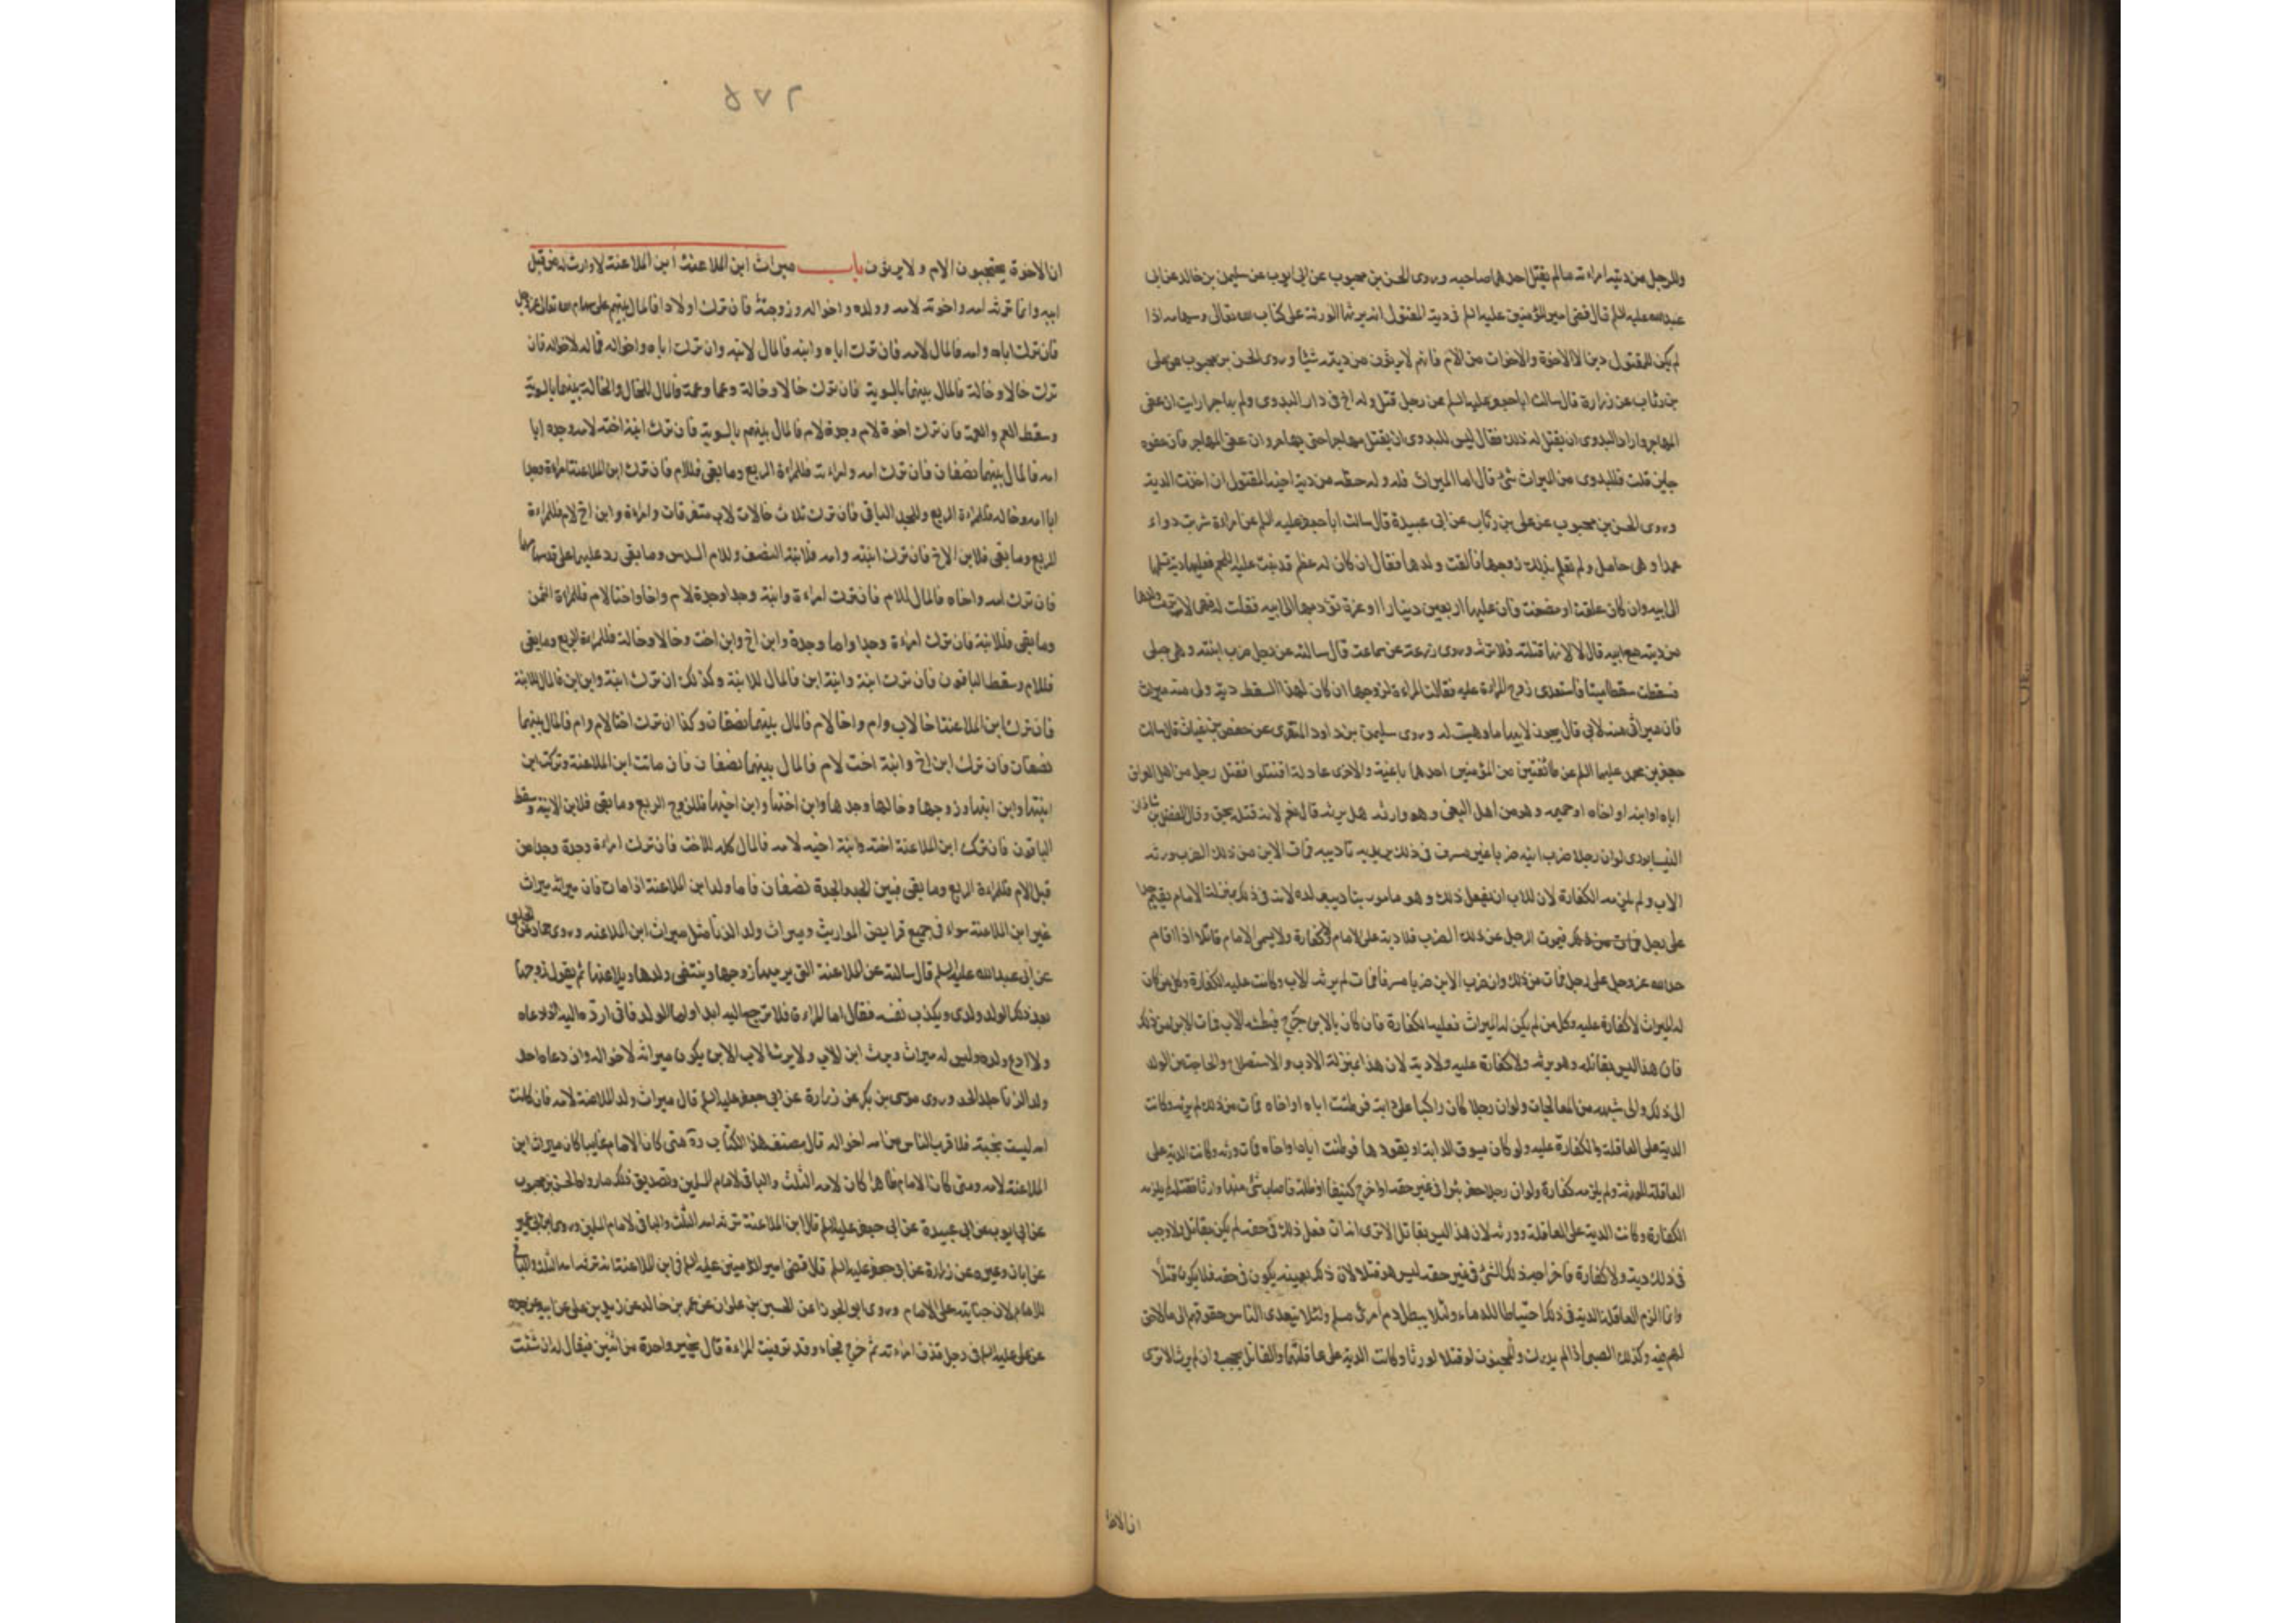 وللرجل من دية امراته ما لم يقتل احدهما صاحبه وروى الحسن بن محبوب عن ابى ايوب عن سليمن بن خالد عن ابى
عبدالله عليه السلم قال قضى امير المؤمنين عليه السلم فى دية المقتول انه يرثها الورثة على كتاب الله تعالى وسهامه اذا
لم يكن للمقتول دين الا الاخوة والاخوات من الام فانهم لا يرثون من ديته شيئا وروى الحسن بن محبوب عن على
بن رئاب عن زرارة قال سالت ابا جعفر عليه السلم عن رجل قتل وله اخ فى دار البدوى ولم يهاجر ارايت ان عفى
المهاجر واراد البدوى ان يقتل له ذلك فقال ليس للبدوى ان يقتل مهاجرا حتى يهاجر وان عفى المهاجر فان عفوه
جايز قلت فللبدوى من الميراث شئ قال اما الميراث فله وله حظه من دية اخيه المقتول ان اخذت الدية
وروى الحسن بن محبوب عن على بن رئاب عن ابى عبيدة قال سالت ابا جعفر عليه السلم عن امراة شربت دواء
عمدا وهى حامل ولم تعلم بذلك زوجها فالقت ولدها فقال ان كان له عظم قد نبت عليه اللحم فعليها دية تسلمها
الى ابيه وان كان علقة او مضغة فان عليها اربعين دينارا او غرة تؤديها الى ابيه فقلت له فهى لا ترث ولدها
من ديته مع ابيه قال لا لانها قتلته فلا ترثه وروى زرعة عن سماعة قال سالته عن رجل ضرب ابنته وهى حبلى
فسقطت سقطا ميتا فاستعدى زوج المراة عليه فقالت المراة لزوجها ان كان لهذا السقط دية ولى منه ميراث
فان ميراثى منه لابى قال يجوز لابيها ما وهبت له وروى سليمن بن داود المنقرى عن حفص بن غياث قال سالت
جعفر بن محمد عليهما السلم عن طائفتين من المؤمنين احدهما باغية والاخرى عادلة اقتتلوا فقتل رجل من اهل العراق
اباه او ابنه او اخاه او حميمه وهو من اهل البغى وهو وارثه هل يرثه قال نعم لانه قتله بحق وقال الفضل بن شاذان
النيسابورى لو ان رجلا ضرب ابنه ضربا غير مسرف فى ذلك يريد به تاديبه فمات الابن من ذلك الضرب ورثه
الاب ولم يلزمه الكفارة لان للاب ان يفعل ذلك وهو مامور بتاديب ولده لانه فى ذلك بمنزلة الامام يقيم حدا
على رجل فمات من ذلك فيموت الرجل عن ذلك الضرب فلا دية على الامام ولا كفارة ولا يسمى الامام قاتلا اذا اقام
حد الله عز وجل على رجل فمات من ذلك وان ضرب الابن ضربا مسرفا فمات لم يرثه الاب وكانت عليه الكفارة وكل من كان
له الميراث لا كفارة عليه وكل من لم يكن له الميراث فعليه الكفارة فان كان بالابن جرح فبطه الاب فمات الابن من ذلك
فان هذا ليس بقاتل وهو يرثه ولا كفارة عليه ولا دية لان هذا بمنزلة الادب والاستصلاح والحاجة من الولد
الى ذلك والى شبهه من المعالجات ولو ان رجلا كان راكبا على دابة فوطئت اباه او اخاه فمات من ذلك لم يرثه وكانت
الدية على العاقلة والكفارة عليه ولو كان يسوق الدابة او يقودها فوطئت اباه او اخاه فمات ورثه وكانت الدية على
العاقلة للورثة ولم يلزمه كفارة ولو ان رجلا حفر بئرا فى غير حقه او اخرج كنيفا او ظلة فاصاب شئ منها وارثا فقتله لم يلزمه
الكفارة وكانت الدية على العاقلة وورثه لان هذا ليس بقاتل الا ترى انه ان فعل ذلك فى حقه لم يكن بقاتل ولا وجب
فى ذلك دية ولا كفارة فاخراجه ذلك الشئ فى غير حقه ليس هو قتلا لان ذلك بعينه يكون فى حقه فلا يكون قتلا
وانما الزم العاقلة الدية فى ذلك احتياطا للدماء ولئلا يبطل دم امرئ مسلم ولئلا يتعدى الناس حقوقهم الى ما لا حق
لهم فيه وكذلك الصبى اذا لم يدرك والمجنون لو قتلا لورثا وكانت الدية على عاقلتهما والقاتل يحجب وان لم يرث الا ترى
ان الاخوة
٢٧٥
ان الاخوة يحجبون الام ولا يرثون باب ميراث ابن الملاعنة ابن الملاعنة لا وارث له من قبل
ابيه وانما ترثه امه واخوته لامه وولده واخواله وزوجته فان ترك اولادا فالمال بينهم على سهام الله تعالى عز وجل
فان ترك اباه وامه فالمال لامه فان ترك اباه وابنه فالمال لابنه وان ترك اباه واخواله فماله لاخواله فان
ترك خالا وخالة فالمال بينهما بالسوية فان ترك خالا وخالة وعما وعمة فالمال للخال والخالة بينهما بالسوية
وسقط العم والعمة فان ترك اخوة لام وجدة لام فالمال بينهم بالسوية فان ترك ابنة اخته لامه وجده ابا
امه فالمال بينهما نصفان فان ترك امه وامراته فللمراة الربع وما بقى فللام فان ترك ابن الملاعنة امراة وجدا
ابا امه وخاله فللمراة الربع وللجد الباقى فان ترك ثلاث خالات لاب متفرقات وامراة وابن اخ لام فللمراة
الربع وما بقى فلابن الاخ فان ترك ابنته وامه فلابنة النصف وللام السدس وما بقى رد عليهما على قدر سهامهما
فان ترك امه واخاه فالمال للام فان ترك امراة وابنة وجدا وجدة لام واخا واختا لام فللمراة الثمن
وما بقى فللابنة فان ترك امراة وجدا واما وجدة وابن اخ وابن اخت وخالا وخالة فللمراة الربع وما بقى
فللام وسقط الباقون فان ترك ابنة وابنة ابن فالمال للابنة وكذلك ان ترك ابنة وابن ابن فالمال للابنة
فان ترك ابن الملاعنة اخا لاب وام واخا لام فالمال بينهما نصفان وكذا ان ترك اختا لام وام فالمال بينهما
نصفان فان ترك ابن اخ وابنة اخت لام فالمال بينهما نصفان فان ماتت ابن الملاعنة وتركت ابن
ابنتها وابن ابنها وزوجها وخالها وجدها وابن اختها وابن اخيها فللزوج الربع وما بقى فلابن الابنة وسقط
الباقون فان ترك ابن الملاعنة اخته وابنة اخيه لامه فالمال كله للاخت فان ترك امراة وجدة وجدا من
قبل الام فللمراة الربع وما بقى فبين الجد والجدة نصفان فاما ولد ابن الملاعنة اذا مات فان ميراثه ميراث
غير ابن الملاعنة سواء فى جميع فرايض المواريث وميراث ولد الزنا مثل ميراث ابن الملاعنه وروى حماد عن الحلبى
عن ابى عبد الله عليه السلم قال سالته عن الملاعنة التى يرميها زوجها وينتفى ولدها ويلاعنها ثم يقول زوجها
بعد ذلك الولد ولدى ويكذب نفسه فقال اما المراة فلا ترجع اليه ابدا واما الولد فانى ارده اليه اذا دعاه
ولا ادع ولده وليس له ميراث ويرث ابن الاب ولا يرث الاب الابن يكون ميراثه لاخواله وان دعاه احد
ولد الزنا جلد الحد وروى موسى بن بكر عن زرارة عن ابى جعفر عليه السلم قال ميراث ولد الملاعنة لامه فان كانت
امه ليست بحية فلاقرب الناس من امه اخواله قال مصنف هذا الكتاب ره متى كان الامام غايبا كان ميراث ابن
الملاعنة لامه ومتى كان الامام ظاهرا كان لامه الثلث والباقى لامام المسلمين وتصديق ذلك ما رواه الحسن بن محبوب
عن ابى ايوب عن ابى عبيدة عن ابى جعفر عليه السلم قال ابن الملاعنة ترثه امه الثلث والباقى لامام المسلمين وروى ابن ابى عمير
عن ابان وغيره عن زرارة عن ابى جعفر عليه السلم قال قضى امير المؤمنين عليه السلم فى ابن الملاعنة انه ترثه امه الثلث والباقى
للامام لان جنايته على الامام وروى ابو الجوزا عن الحسين بن علوان عن عمر بن خالد عن زيد بن على عن ابيه عن جده
عن على عليه السلم فى رجل قذف امراته ثم خرج فجاء وقد توفيت المراة قال يخير واحدة من اثنين فيقال له ان شئت